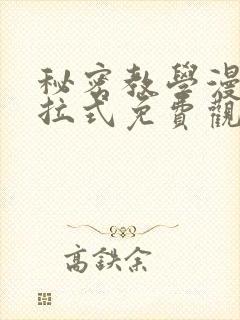 秘密教學漫
拉式免費觀
高鉄余